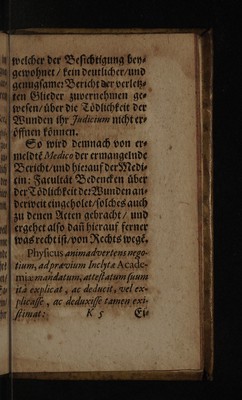 welcher der Besichtigung bey-
gewohnet / kein deutlicher/und
genugsamer Bericht der verletz-
ten Glieder zuvernehmen ge-
wesen/über die Tödlichkeit der
Wunden ihr Judicium nicht er-
öffnen können.
So wird demnach von er-
meldtē Medico der ermangelnde
Bericht/und hierauf der Medi-
cin: Facultät Bedencken über
der Tödlichkeit der Wunden an-
derweit eingeholet/solches auch
zu denen Acten gebracht / und
ergehet also dañ hierauf ferner
was recht ist/von Rechts wegē.
Physicus animadvertens nego-
tium, ad prævium Inclytæ Acade-
miæ mandatum, attestatum suum
ità explicat, ac deducit, vel ex-
plicasse, ac deduxisse tamen exi-
stimat:
K 5
Ei-